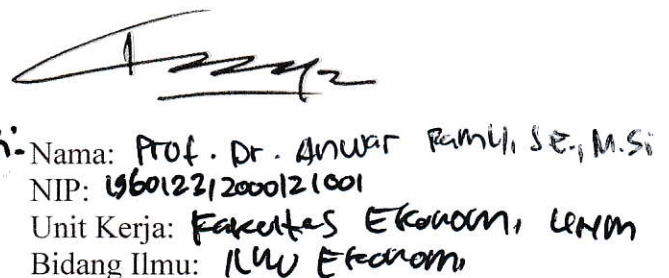 Nama: Prof. Dr. Anwar Ramli, SE., M.Si
NIP: 196012212000121001
Unit Kerja: Fakultas Ekonomi, UNM
Bidang Ilmu: Ilmu Ekonomi